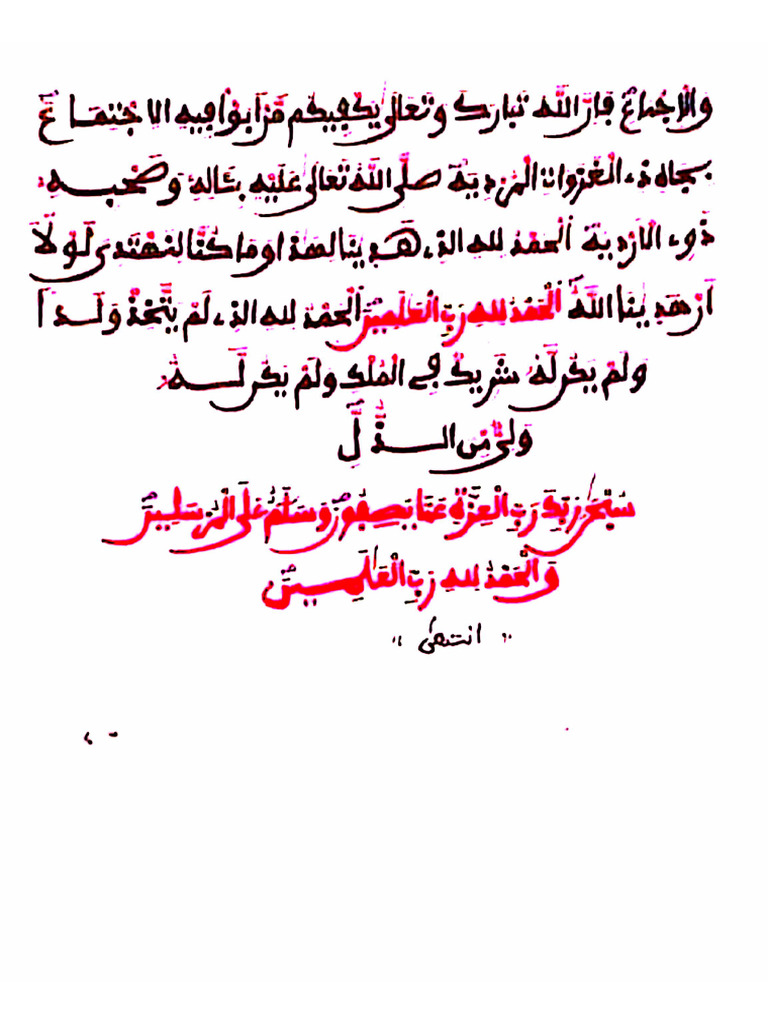 والاجماع فإن الله تبارك وتعالى يكفيكم من أبوا فيه الاجتماع
بجاه ذي الغزوات المردية صلى الله تعالى عليه بئاله وصحبه
ذوي الاردية الحمد لله الذي هدينا لهذا وما كنا لنهتدي لولا
أن هدينا الله الحمد لله رب العلمين الحمد لله الذي لم يتخذ ولدا
ولم يكن له شريك في الملك ولم يكن له
ولي من الذل
سبحن ربك رب العزة عما يصفون وسلم على المرسلين
والحمد لله رب العلمين
" انتهى "